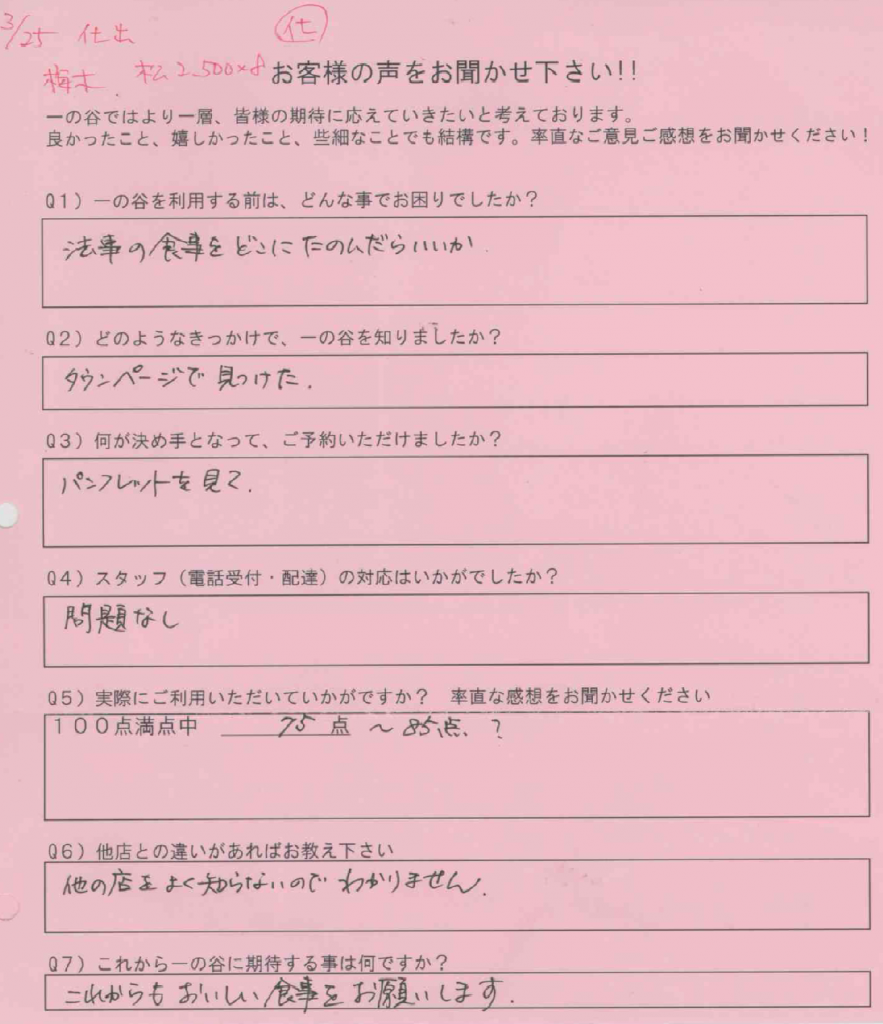 3/25 仕出 仕
梅木. 松2,500×8 お客様の声をお聞かせ下さい!!
一の谷ではより一層、皆様の期待に応えていきたいと考えております。
良かったこと、嬉しかったこと、些細なことでも結構です。率直なご意見ご感想をお聞かせください!
Q1）一の谷を利用する前は、どんな事でお困りでしたか？
法事の食事をどこにたのんだらいいか
Q2）どのようなきっかけで、一の谷を知りましたか？
タウンページで見つけた.
Q3）何が決め手となって、ご予約いただけましたか？
パンフレットを見て.
Q4）スタッフ（電話受付・配達）の対応はいかがでしたか？
問題なし
Q5）実際にご利用いただいていかがですか？ 率直な感想をお聞かせください
１００点満点中 75 点 〜 85点、?
Q6）他店との違いがあればお教え下さい
他の店をよく知らないのでわかりません.
Q7）これから一の谷に期待する事は何ですか？
これからもおいしい食事をお願いします.